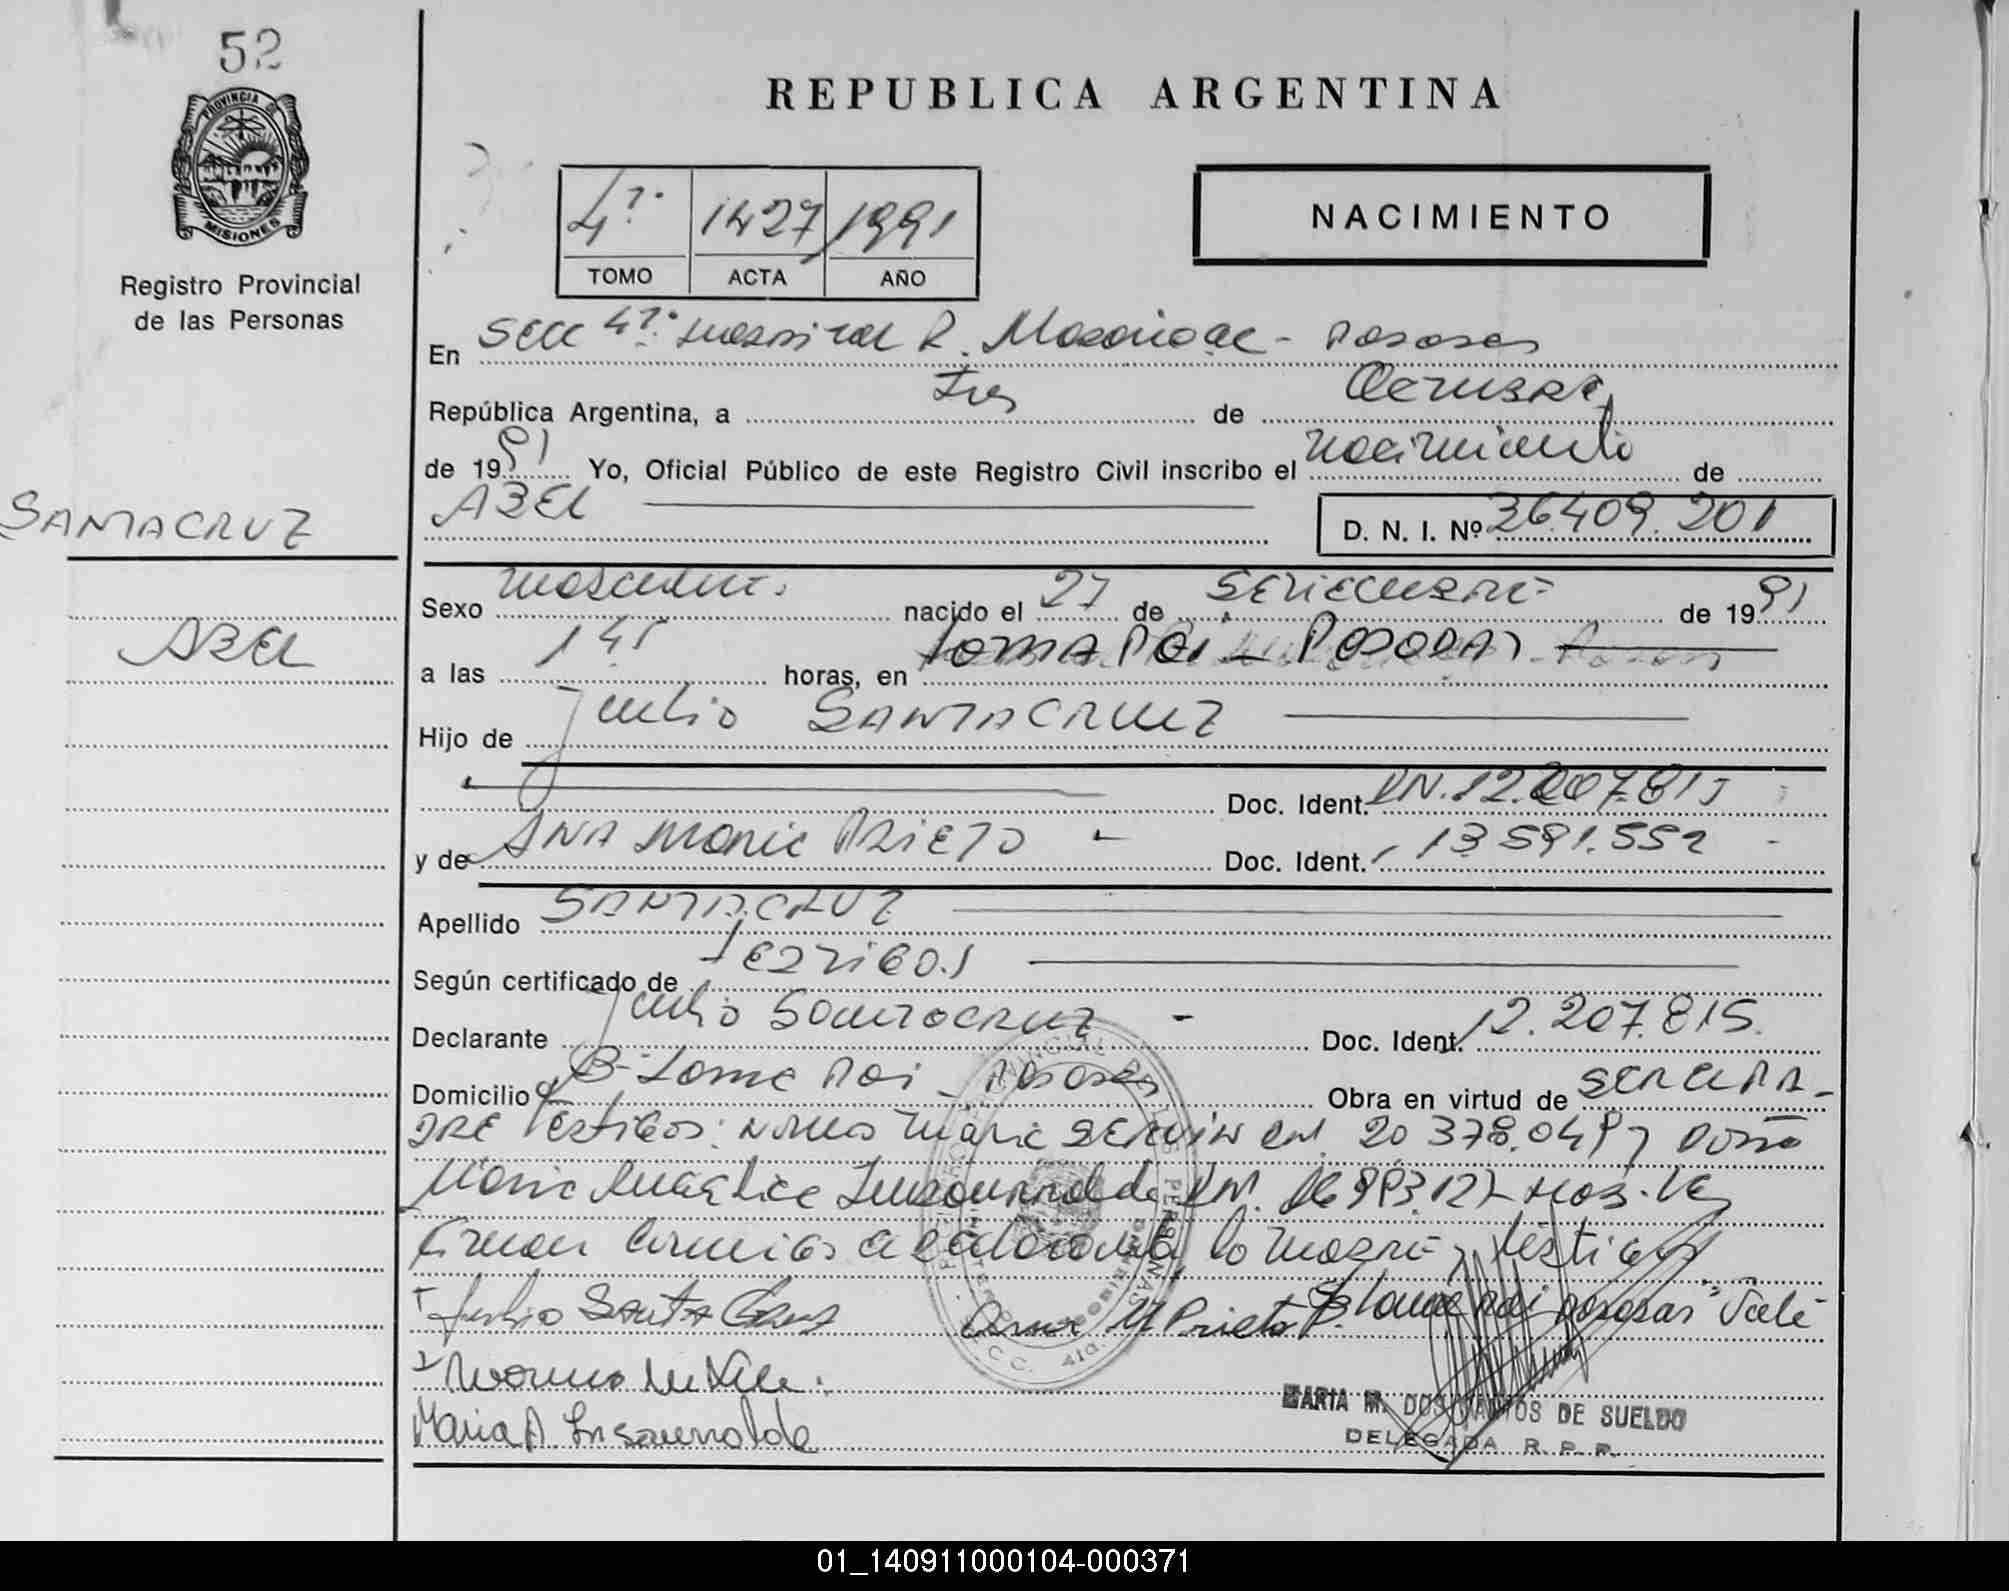 52
REPUBLICA ARGENTINA
PROVINCIA DE
MISIONES
Registro Provincial
de las Personas
4º
1427
1991
TOMO
ACTA
AÑO
NACIMIENTO
En Secc 4º. Hospital R. Madariaga - Posadas
República Argentina, a Tres de Octubre,
de 1991 Yo, Oficial Público de este Registro Civil inscribo el nacimiento de
SANTACRUZ
ABEL
D. N. I. Nº 36.409.201
ABEL
Sexo masculino nacido el 27 de SETIEMBRE de 1991
a las horas, en LOMA POI - POSADAS
Hijo de Julio SANTACRUZ
Doc. Ident. DNI. 12.207.815
y de ANA Maria PRIETO - Doc. Ident. 13.591.552 -
Apellido SANTACRUZ
Según certificado de Testigos
Declarante Julio Santacruz - Doc. Ident. 12.207.815.
Domicilio Bº Loma Poi - Posadas Obra en virtud de SER EL PA-
DRE Testigos: Norma Maria 20.378.049 y Doña
Maria Angelica Insaurralde DNI.
Firman conmigo el declarante, la madre y testigos
Julio Santa Cruz Ana M Prieto Bº Loma Poi Posadas" Vale-
Maria A. Insaurralde
MARIA M. DOS SANTOS DE SUELDO
DELEGADA R. P. P.
01_140911000104-000371